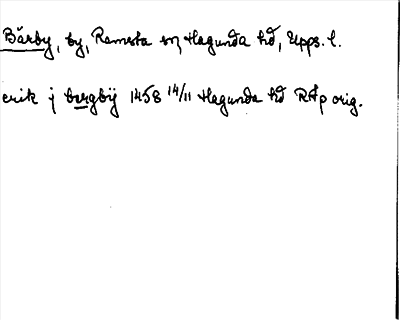 Bärby, by, Ramsta sn, Hagunda hd, Upps. l.
erik j bergbÿ 1458 14/11 Hagunda hd RAp orig.